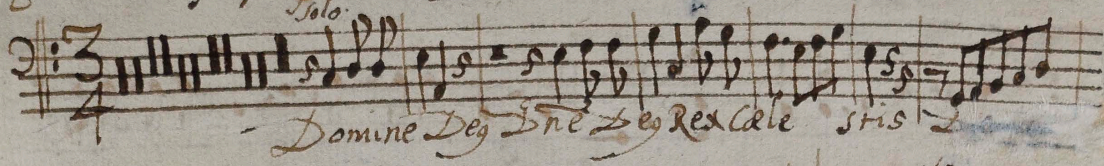 Solo.
3
4
Domine Deg Dne Deg Rex Cæle stis